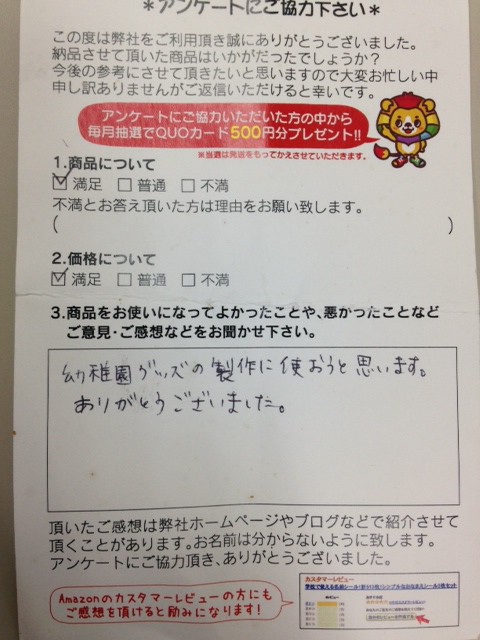 *アンケートにご協力下さい*
この度は弊社をご利用頂き誠にありがとうございました。
納品させて頂いた商品はいかがだったでしょうか?
今後の参考にさせて頂きたいと思いますので大変お忙しい中
申し訳ありませんがご返信いただけると幸いです。
アンケートにご協力いただいた方の中から
毎月抽選でQUOカード500円分プレゼント!!
※当選は発送をもってかえさせていただきます。
1.商品について
☑ 満足 □ 普通 □ 不満
不満とお答え頂いた方は理由をお願い致します。
( )
2.価格について
☑ 満足 □ 普通 □ 不満
3.商品をお使いになってよかったことや、悪かったことなど
ご意見・ご感想などをお聞かせ下さい。
幼稚園グッズの製作に使おうと思います。
ありがとうございました。
頂いたご感想は弊社ホームページやブログなどで紹介させて
頂くことがあります。お名前は分からないように致します。
アンケートにご協力頂き、ありがとうございました。
Amazonのカスタマーレビューの方にも
ご感想を頂けると励みになります!
カスタマーレビュー